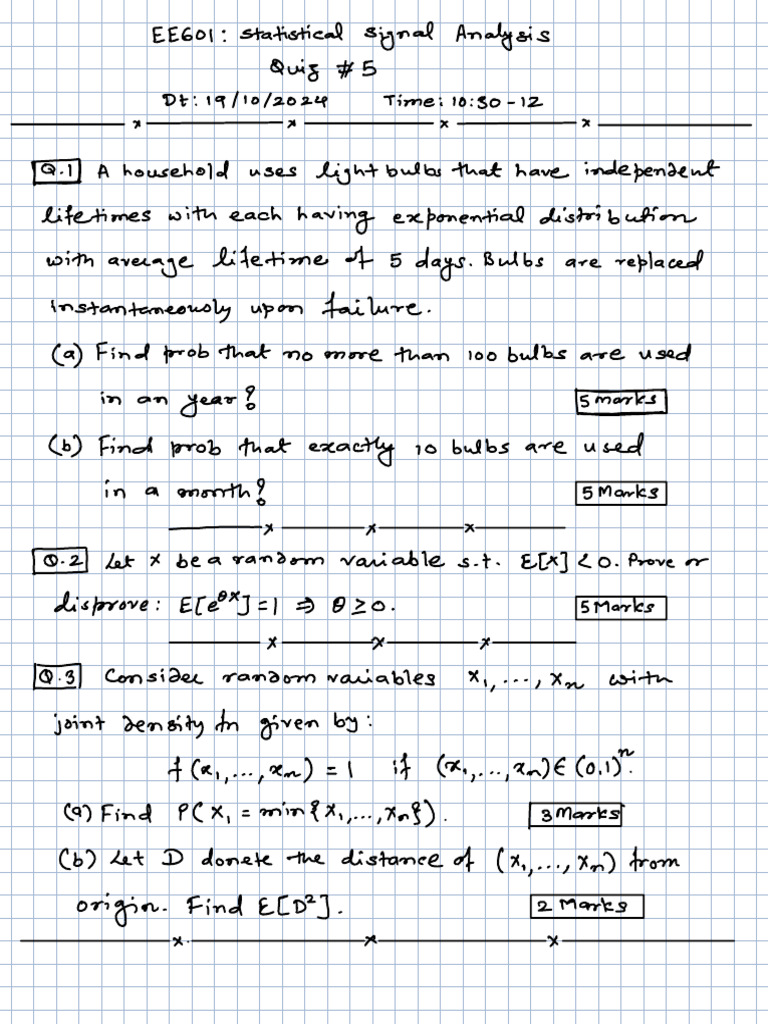 EE601: Statistical Signal Analysis
Quiz #5
Dt: 19/10/2024 Time: 10:30-12
Q.1 A household uses light bulbs that have independent
lifetimes with each having exponential distribution
with average lifetime of 5 days. Bulbs are replaced
instantaneously upon failure.
(a) Find prob that no more than 100 bulbs are used
in an year? 5 marks
(b) Find prob that exactly 10 bulbs are used
in a month? 5 Marks
Q.2 Let X be a random variable s.t. E[X] < 0. Prove or
disprove: E[e^{θX}] = 1 ⇒ θ ≥ 0. 5 Marks
Q.3 Consider random variables X₁, ..., Xₙ with
joint density fn given by:
f(x₁, ..., xₙ) = 1 if (x₁, ..., xₙ) ∈ (0,1)ⁿ.
(a) Find P(X₁ = min{X₁, ..., Xₙ}). 3 Marks
(b) Let D donete the distance of (X₁, ..., Xₙ) from
origin. Find E[D²]. 2 Marks